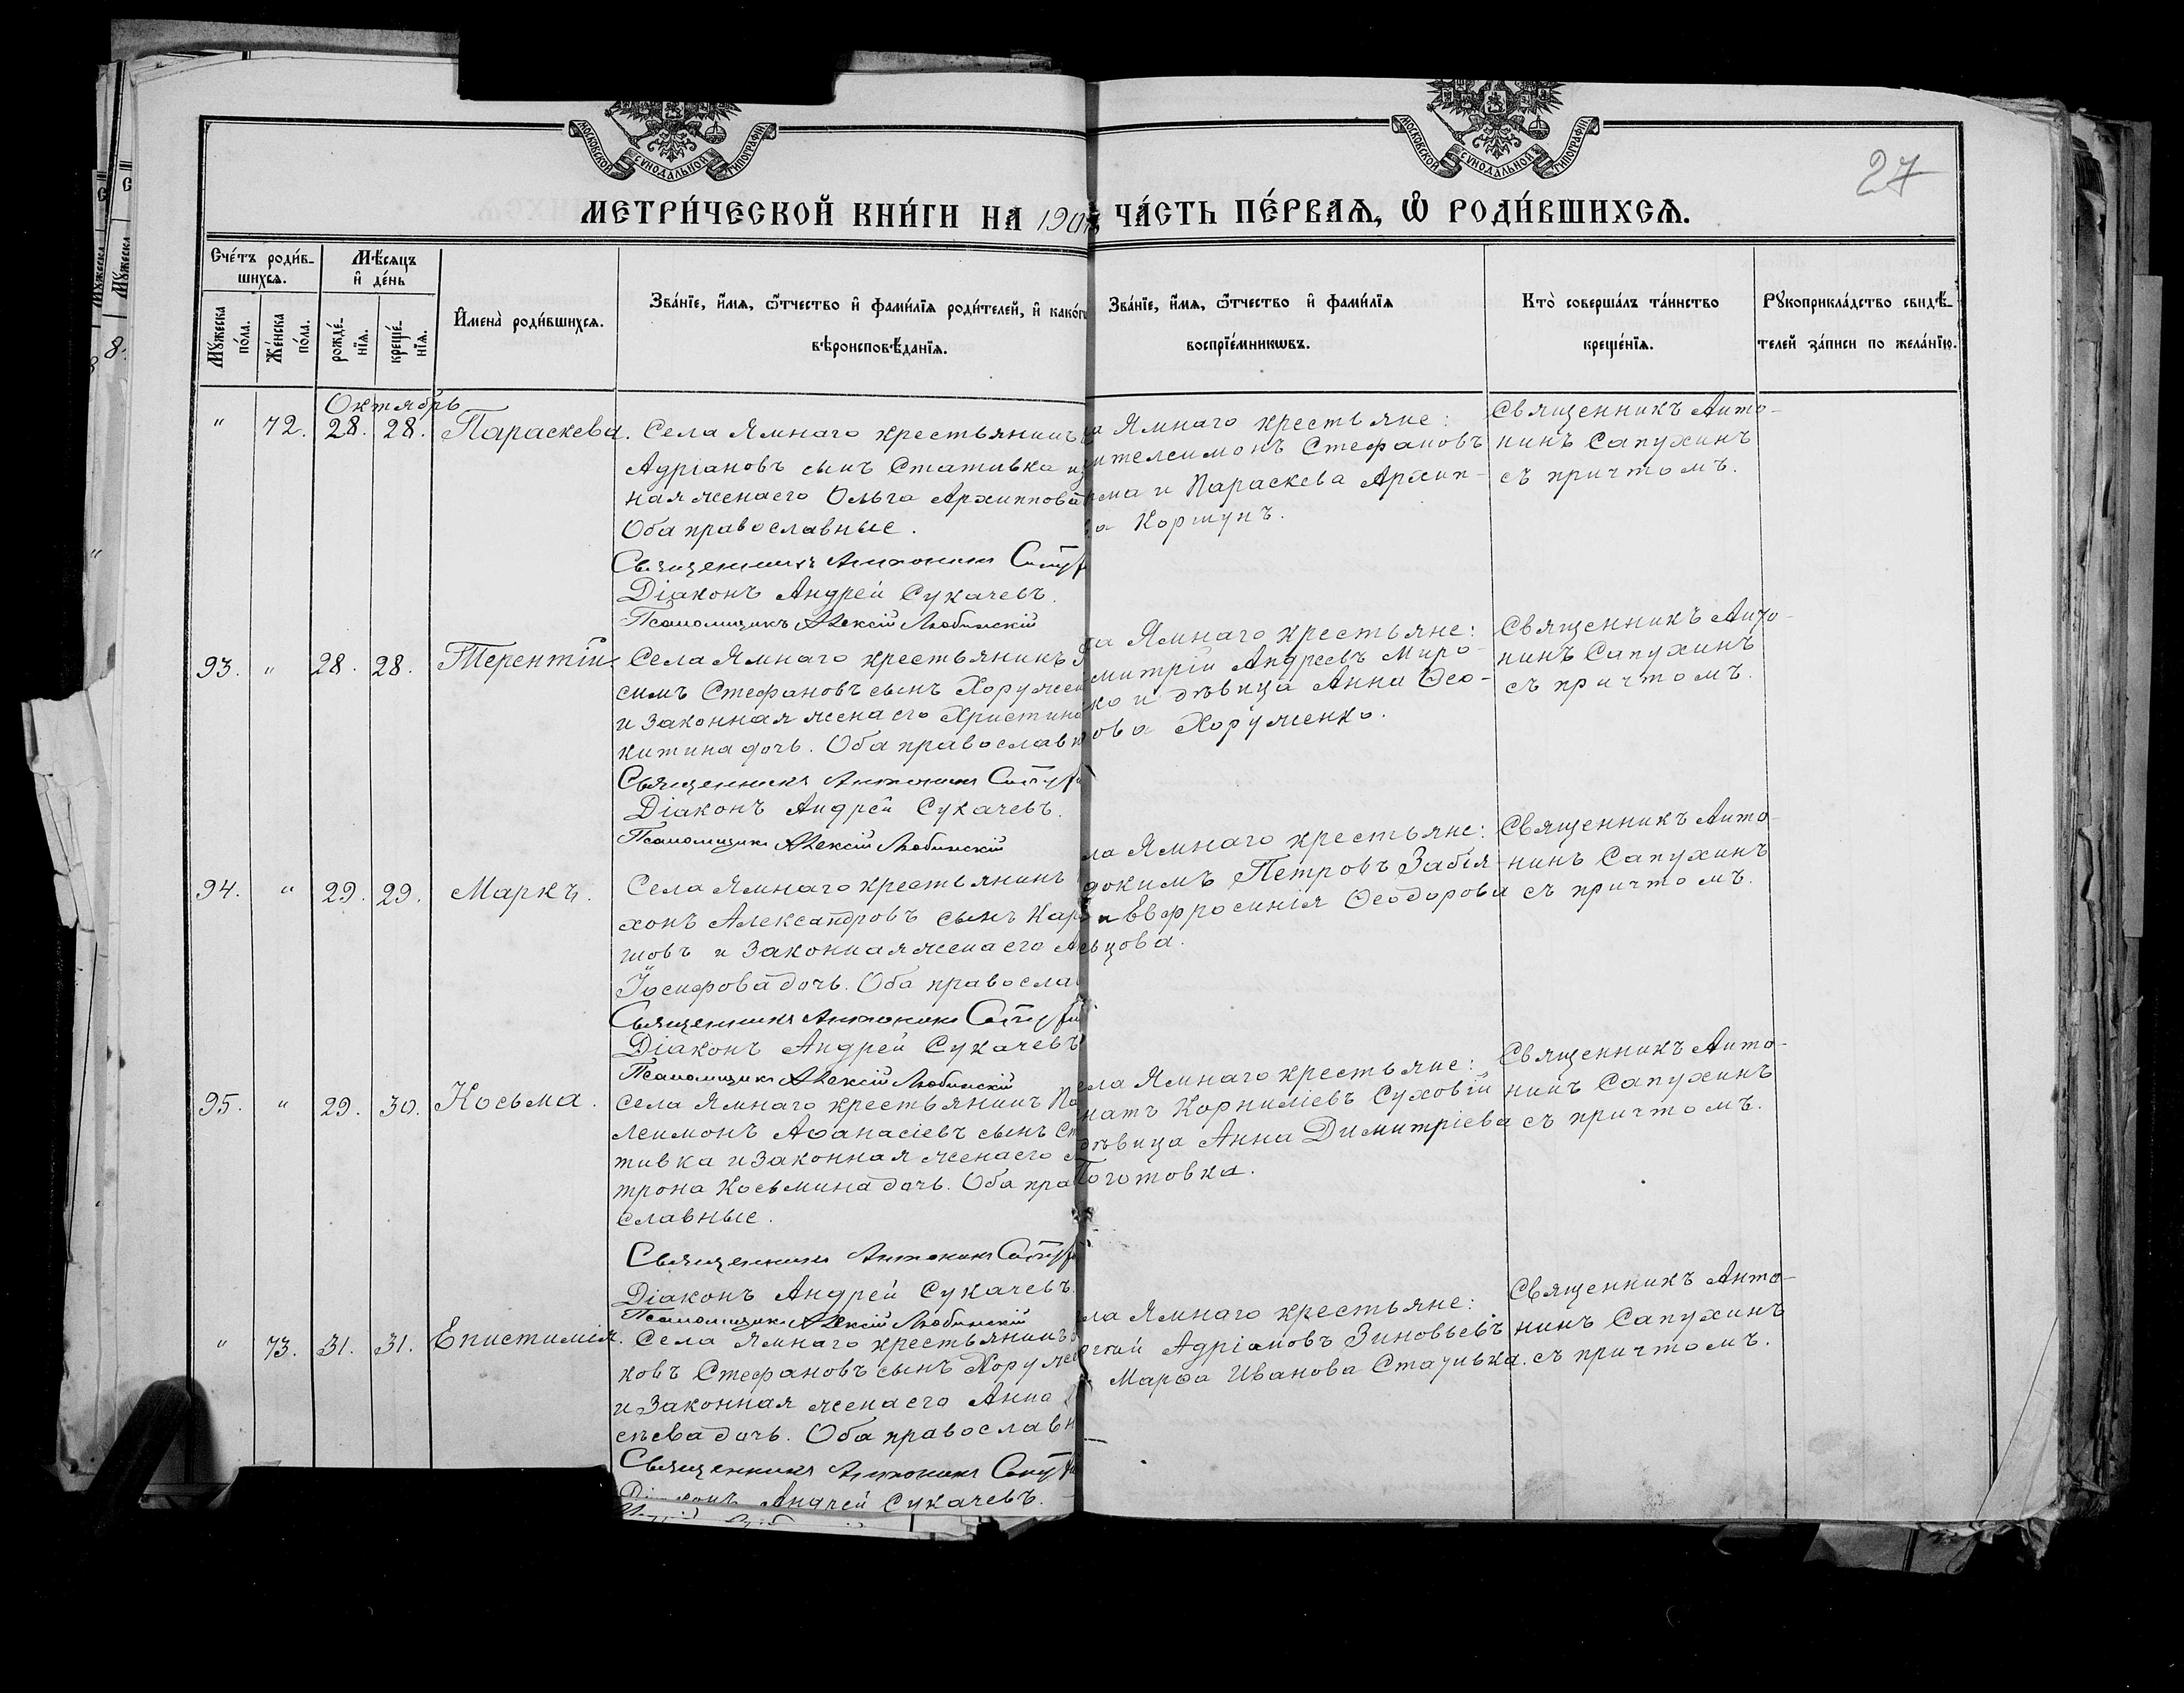 МОСКОВСКОЙ СѴНОДАЛЬНОЙ ТИПОГРАФІИ
МОСКОВСКОЙ СѴНОДАЛЬНОЙ ТИПОГРАФІИ
27
МЕТРИ́ЧЕСКОЙ КНИ́ГИ НА 190 ЧА́СТЬ ПЕ́РВАѦ, Ѡ҆ РОДИ́ВШИХСѦ.
Сче́тъ роди́в-
шихсѧ.
Мѣ́сѧцъ
и҆ де́нь
Мꙋ́жеска по́ла.
Же́нска по́ла.
рожде́-нїѧ.
креще́-нїѧ.
И҆мена̀ роди́вшихсѧ.
Зва́нїе, и҆́мѧ, ѻ҆́тчество и҆ фами́лїѧ роди́телей, и҆ како́гѡ
вѣроисповѣ́данїѧ.
Зва́нїе, и҆́мѧ, ѻ҆́тчество и҆ фами́лїѧ
воспрїе́мникѡвъ.
Кто̀ соверша́лъ та́инство
креще́нїѧ.
Рꙋкоприкла́дство свидѣ́-
телей за́писи по жела́нїю.
Октябрь
" 72. 28. 28. Параскева. Села Ямнаго крестьянинъ
Адріановъ сынъ Стативка и
ная жена его Ольга Архиппова
Оба православные.
Священникъ Антонинъ
Діаконъ Андрей Сукачевъ.
Псаломщикъ Алексій Любинскій
ла Ямнаго крестьяне:
нтелеимонъ Стефановъ
ма и Параскева Архип-
ва Коршунъ.
Священникъ Анто-
нинъ Сапухинъ
съ причтомъ.
93. " 28. 28. Терентій. Села Ямнаго крестьянинъ
симъ Стефановъ сынъ Хоружен
и законная жена его Христина
китина дочь. Оба православн
Священникъ Антонинъ
Діаконъ Андрей Сукачевъ.
Псаломщикъ Алексій Любинскій
ла Ямнаго крестьяне:
митрій Андреевъ Миро-
ко и дѣвица Анна Ѳео-
ова Хоруженко.
Священникъ Анто-
нинъ Сапухинъ
съ причтомъ.
94. " 29. 29. Маркъ. Села Ямнаго крестьянинъ
хонъ Александровъ сынъ Кар
шовъ и законная жена его
Іосифова дочь. Оба правосла
Священникъ Антонинъ
Діаконъ Андрей Сукачевъ
Псаломщикъ Алексій Любинскій
ла Ямнаго крестьяне:
докимъ Петровъ Забія-
и Евфросинія Ѳеодорова
ьцова.
Священникъ Анто-
нинъ Сапухинъ
съ причтомъ.
95. " 29. 30. Косьма. Села Ямнаго крестьянинъ Па
леимонъ Аѳанасіевъ сынъ Ст
тивка и законная жена его
трона Косьмина дочь. Оба пра
славные.
Священникъ Антонинъ
Діаконъ Андрей Сукачевъ.
Псаломщикъ Алексій Любинскій
ела Ямнаго крестьяне:
натъ Корниліевъ Суховій
дѣвица Анна Димитріева
Логотовка.
Священникъ Анто-
нинъ Сапухинъ
съ причтомъ.
" 73. 31. 31. Епистимія. Села Ямнаго крестьянинъ
ковъ Стефановъ сынъ Хоруже
и законная жена его Анна
сѣева дочь. Оба православн
Священникъ Антонинъ
Діаконъ Андрей Сукачевъ.
ла Ямнаго крестьяне:
ргій Адріановъ Зиновьевъ
Марѳа Иванова Стативка.
Священникъ Анто-
нинъ Сапухинъ
съ причтомъ.